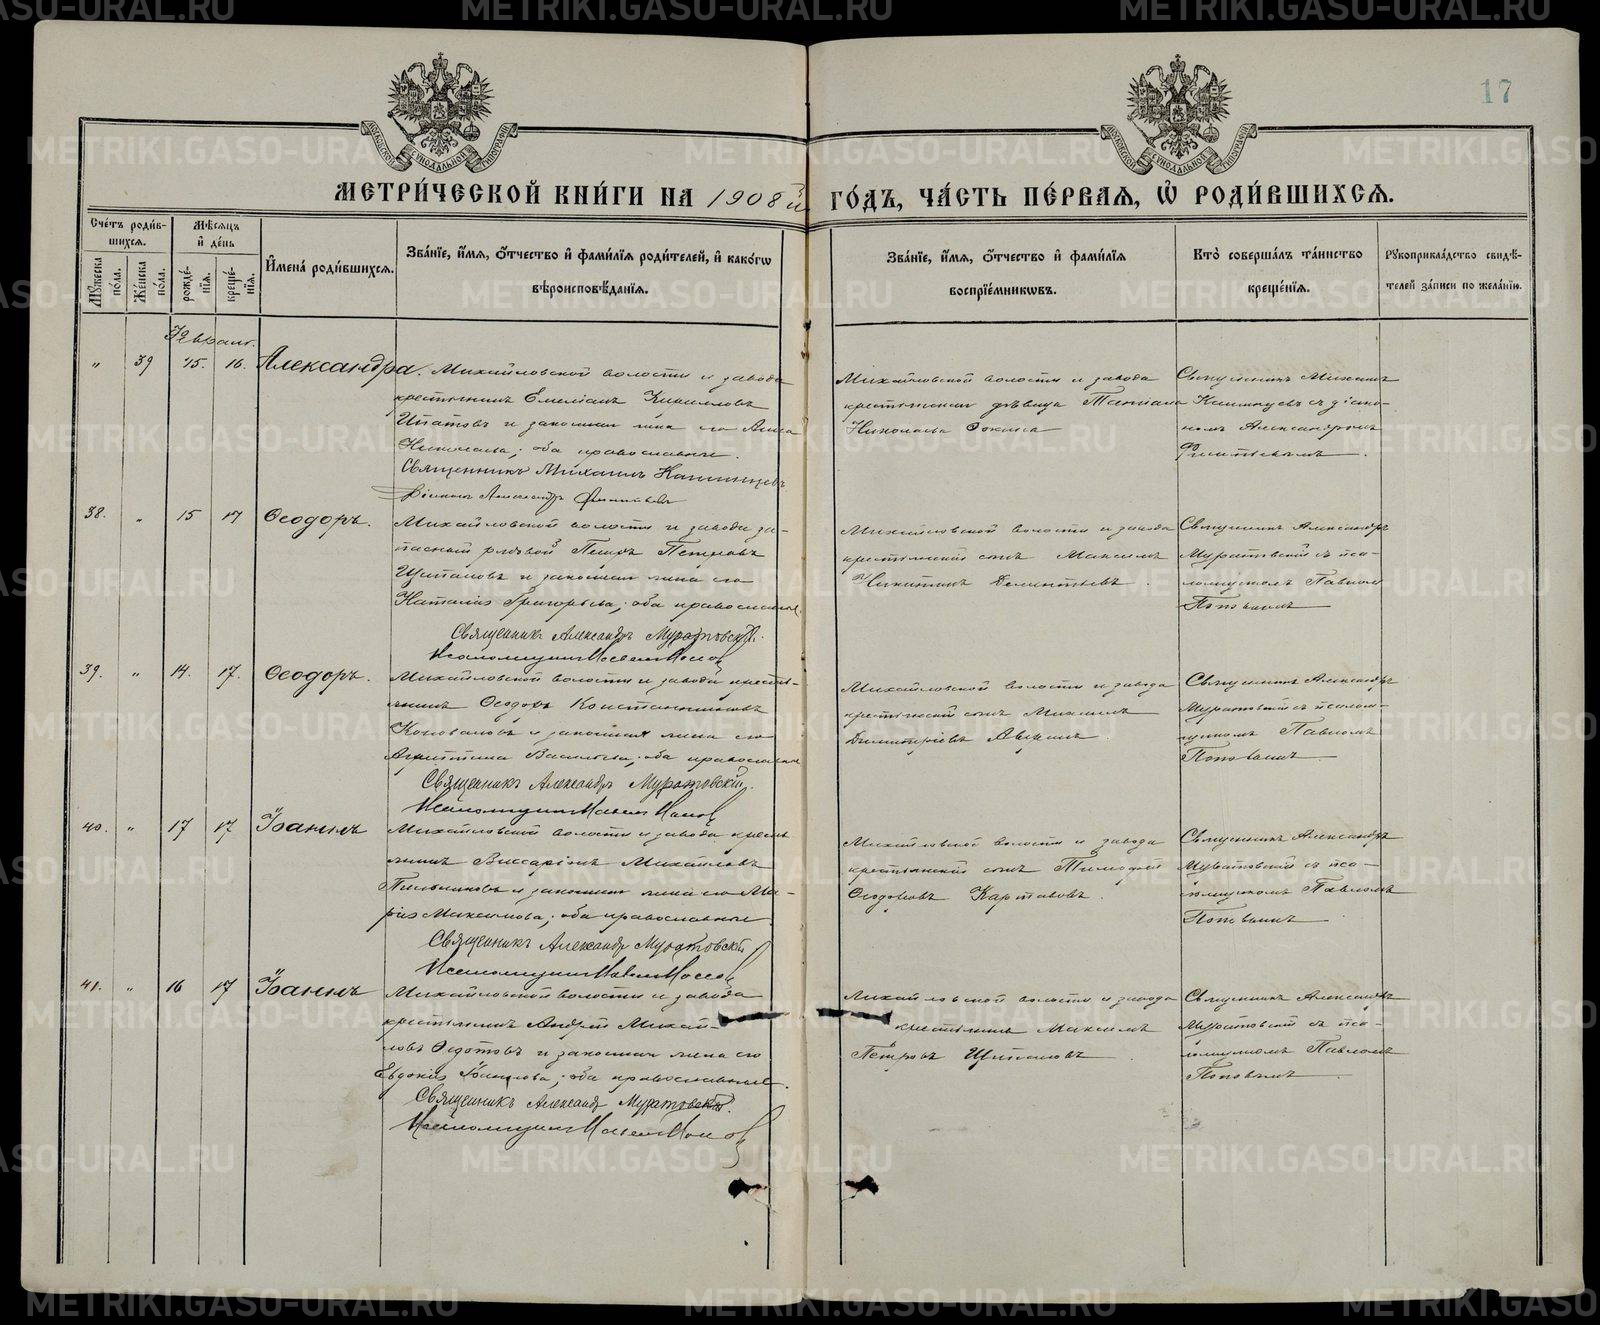 METRIKI.GASO-URAL.RU
17
МОСКОВСКОЙ СѴНОДАЛЬНОЙ ТИПОГРАФІИ
МОСКОВСКОЙ СѴНОДАЛЬНОЙ ТИПОГРАФІИ
МЕТРИ́ЧЕСКОЙ КНИ́ГИ НА 1908й ГО́ДЪ, ЧА́СТЬ ПЕ́РВАЯ, Ѡ РОДИ́ВШИХСЯ.
Сче́тъ роди́вшихся.
Мꙋ́жеска по́ла.
Же́нска по́ла.
Мѣ́сяцъ и҆ де́нь
рожде́нїя.
креще́нїя.
И҆мена̀ роди́вшихся.
Зва́нїе, и҆́мя, ѻ҆́тчество и҆ фами́лїя роди́телей, и҆ како́гѡ вѣроисповѣ́данїя.
Зва́нїе, и҆́мя, ѻ҆́тчество и҆ фами́лїя воспрїе́мникѡвъ.
Кто̀ соверша́лъ та́инство креще́нїя.
Рꙋкоприкла́дство свидѣ́телей за́писи по жела́нїю.
Февраль.
" 39 15. 16. Александра.
Михайловской волости и завода
крестьянинъ Емеліанъ Кирилловъ
Ипатовъ и законная жена его Анна
Николаева; оба православные.
Священникъ Михаилъ Канинцевъ
Діаконъ Александръ
Михайловской волости и завода
крестьянская дѣвица Татіана
Николаева
Священникъ Михаилъ
Канинцевъ съ діако-
номъ Александромъ
38. " 15 17 Ѳеодоръ.
Михайловской волости и завода за-
пасный рядовой Петръ Петровъ
Щипановъ и законная жена его
Наталія Григорьева; оба православные.
Священникъ Александръ Муратовскій.
Михайловской волости и завода
крестьянскій сынъ Максимъ
Никитинъ Дементьевъ.
Священникъ Александръ
Муратовскій съ пса-
ломщикомъ Павломъ
Поповымъ
39. " 14. 17. Ѳеодоръ.
Михайловской волости и завода кресть-
янинъ Ѳеодоръ Константиновъ
Коноваловъ и законная жена его
Агриппина Васильева; оба православные
Священникъ Александръ Муратовскій.
Михайловской волости и завода
крестьянскій сынъ Михаилъ
Димитріевъ
Священникъ Александръ
Муратовскій съ псалом-
щикомъ Павломъ
Поповымъ
40. " 17 17 Іоаннъ
Михайловской волости и завода кресть-
янинъ Виссаріонъ Михайловъ
и законная жена его Ма-
рія Максимова; оба православные
Священникъ Александръ Муратовскій
Михайловской волости и завода
крестьянскій сынъ Тимоѳей
Ѳеодоровъ Картавовъ.
Священникъ Александръ
Муратовскій съ пса-
ломщикомъ Павломъ
Поповымъ
41. " 16 17 Іоаннъ
Михайловской волости и завода
крестьянинъ Андрей Михай-
ловъ Ѳедотовъ и законная жена его
Евдокія; оба православные.
Священникъ Александръ Муратовскій.
Михайловской волости и завода
крестьянинъ Максимъ
Петровъ Щипановъ
Священникъ Александръ
Муратовскій съ пса-
ломщикомъ Павломъ
Поповымъ